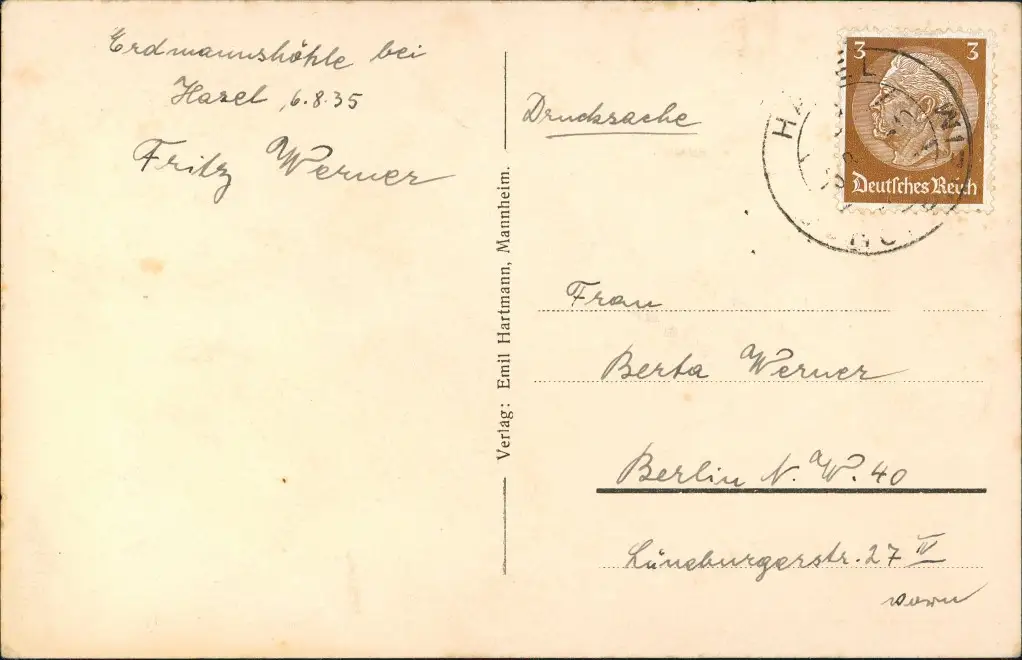 Erdmannshöhle bei
Hasel, 6.8.35
Fritz Werner
Verlag: Emil Hartmann, Mannheim.
Drucksache
3 3
Deutsches Reich
Frau
Berta Werner
Berlin N.W. 40
Lüneburgerstr. 27 IV
vorn